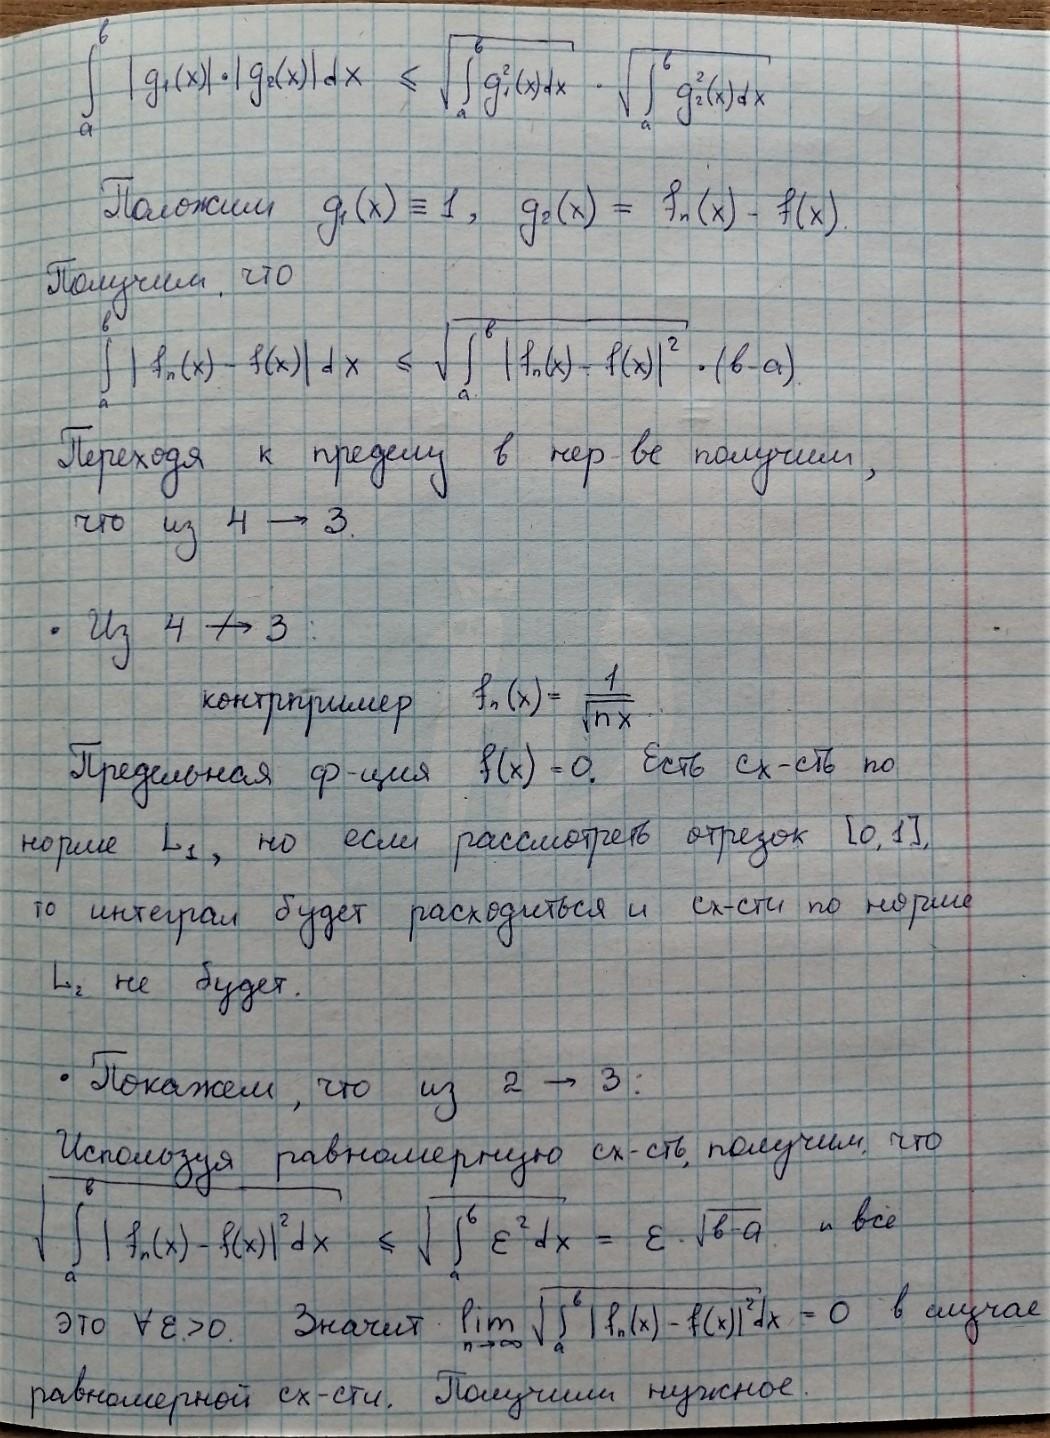 ∫_a^b |g₁(x)|·|g₂(x)|dx ≤ √(∫_a^b g₁²(x)dx) · √(∫_a^b g₂²(x)dx)
Положим g₁(x) ≡ 1, g₂(x) = fₙ(x) - f(x).
Получим, что
∫_a^b |fₙ(x) - f(x)| dx ≤ √(∫_a^b |fₙ(x) - f(x)|²) · (b-a).
Переходя к пределу в нер-ве получим,
что из 4 → 3.
• Из 4 ↛ 3:
контрпример fₙ(x) = 1/√(nx).
Предельная ф-ция f(x) = 0. Есть сх-сть по
норме L₁, но если рассмотреть отрезок [0,1],
то интеграл будет расходиться и сх-сти по норме
L₂ не будет.
• Покажем, что из 2 → 3:
Используя равномерную сх-сть, получим, что
√(∫_a^b |fₙ(x) - f(x)|²dx) ≤ √(∫_a^b ε²dx) = ε·√(b-a) и всё
это ∀ε>0. Значит lim_{n→∞} √(∫_a^b |fₙ(x) - f(x)|²dx) = 0 в случае
равномерной сх-сти. Получили нужное.